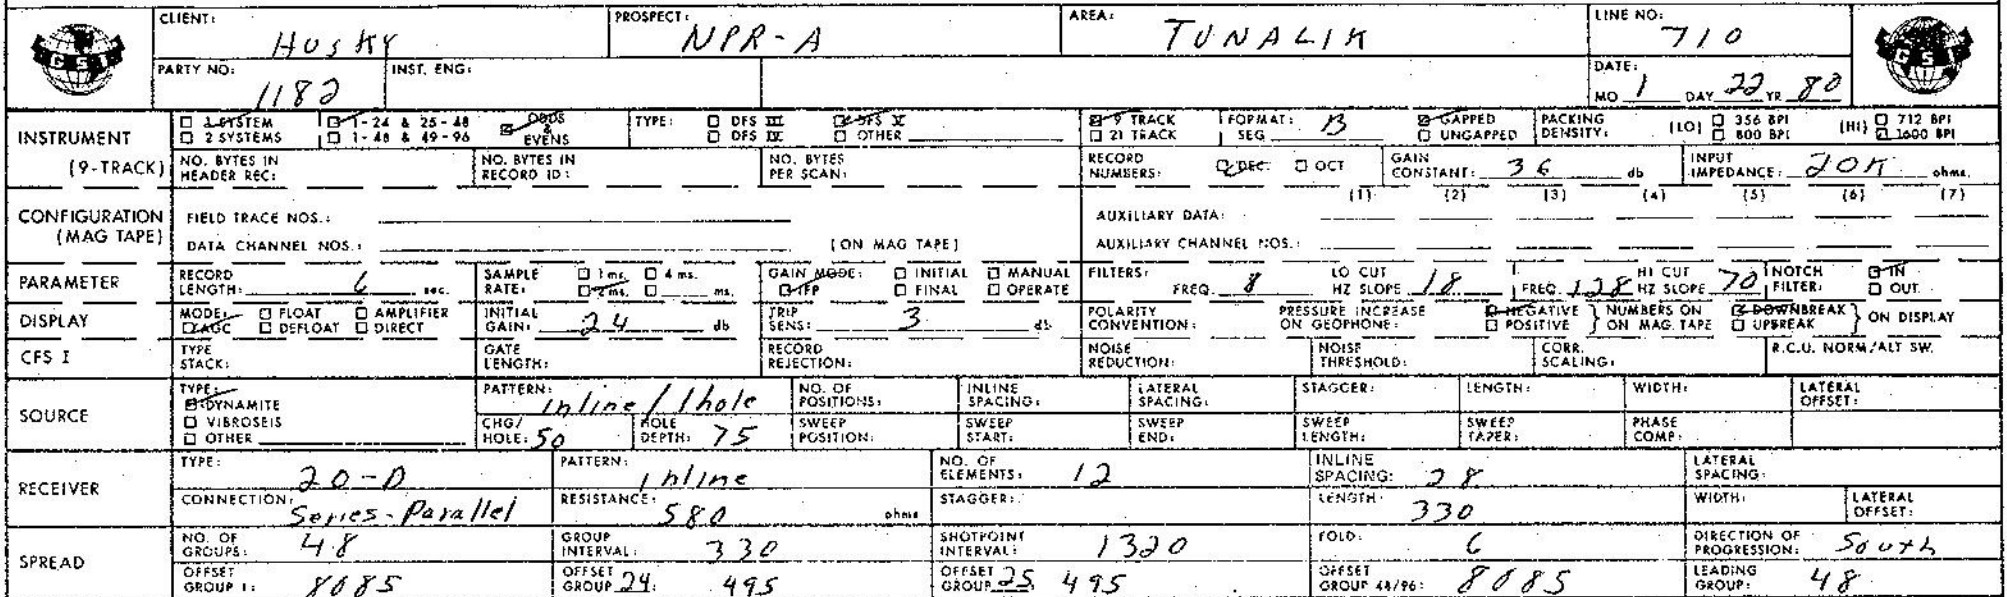 CLIENT: Husky PROSPECT: NPR-A AREA: TUNALIK LINE NO: 710
GSI GSI
PARTY NO: 1182 INST. ENG: DATE: MO 1 DAY 22 YR 80
INSTRUMENT (9-TRACK)
☑ 1 SYSTEM ☑ 1-24 & 25-48 ☑ ODDS & EVENS TYPE: ☐ DFS III ☑ DFS V ☑ 9 TRACK FORMAT: SEG B ☑ GAPPED PACKING DENSITY: (LO) ☐ 356 BPI (HI) ☐ 712 BPI
☐ 2 SYSTEMS ☐ 1-48 & 49-96 ☐ DFS IV ☐ OTHER ☐ 21 TRACK ☐ UNGAPPED ☐ 800 BPI ☑ 1600 BPI
NO. BYTES IN HEADER REC: NO. BYTES IN RECORD ID: NO. BYTES PER SCAN: RECORD NUMBERS: ☑ DEC. ☐ OCT GAIN CONSTANT: 36 db INPUT IMPEDANCE: 20K ohms.
CONFIGURATION (MAG TAPE)
(1) (2) (3) (4) (5) (6) (7)
FIELD TRACE NOS.: AUXILIARY DATA:
DATA CHANNEL NOS.: (ON MAG TAPE) AUXILIARY CHANNEL NOS.:
PARAMETER
RECORD LENGTH: 6 sec. SAMPLE RATE: ☐ 1 ms. ☐ 4 ms. ☑ 2 ms. ☐ ms. GAIN MODE: ☑ IFP ☐ INITIAL ☐ MANUAL ☐ FINAL ☐ OPERATE FILTERS: FREQ. 8 LO CUT HZ SLOPE 18 FREQ. 128 HI CUT HZ SLOPE 70 NOTCH FILTER: ☑ IN ☐ OUT
DISPLAY
MODE: ☑ AGC ☐ FLOAT ☐ DEFLOAT ☐ AMPLIFIER ☐ DIRECT INITIAL GAIN: 24 db TRIP SENS: 3 db POLARITY CONVENTION: PRESSURE INCREASE ON GEOPHONE: ☑ NEGATIVE ☐ POSITIVE } NUMBERS ON ON MAG. TAPE ☑ DOWNBREAK ☐ UPBREAK } ON DISPLAY
CFS I
TYPE STACK: GATE LENGTH: RECORD REJECTION: NOISE REDUCTION: NOISE THRESHOLD: CORR. SCALING: R.C.U. NORM/ALT SW.
SOURCE
TYPE: ☑ DYNAMITE ☐ VIBROSEIS ☐ OTHER
PATTERN: Inline / 1hole NO. OF POSITIONS: INLINE SPACING: LATERAL SPACING: STAGGER: LENGTH: WIDTH: LATERAL OFFSET:
CHG/HOLE: 50 HOLE DEPTH: 75 SWEEP POSITION: SWEEP START: SWEEP END: SWEEP LENGTH: SWEEP TAPER: PHASE COMP:
RECEIVER
TYPE: 20-D PATTERN: Inline NO. OF ELEMENTS: 12 INLINE SPACING: 28 LATERAL SPACING:
CONNECTION: Series-Parallel RESISTANCE: 580 ohms STAGGER: LENGTH: 330 WIDTH: LATERAL OFFSET:
SPREAD
NO. OF GROUPS: 48 GROUP INTERVAL: 330 SHOTPOINT INTERVAL: 1320 FOLD: 6 DIRECTION OF PROGRESSION: South
OFFSET GROUP 1: 8085 OFFSET GROUP 24: 495 OFFSET GROUP 25: 495 OFFSET GROUP 48/96: 8085 LEADING GROUP: 48